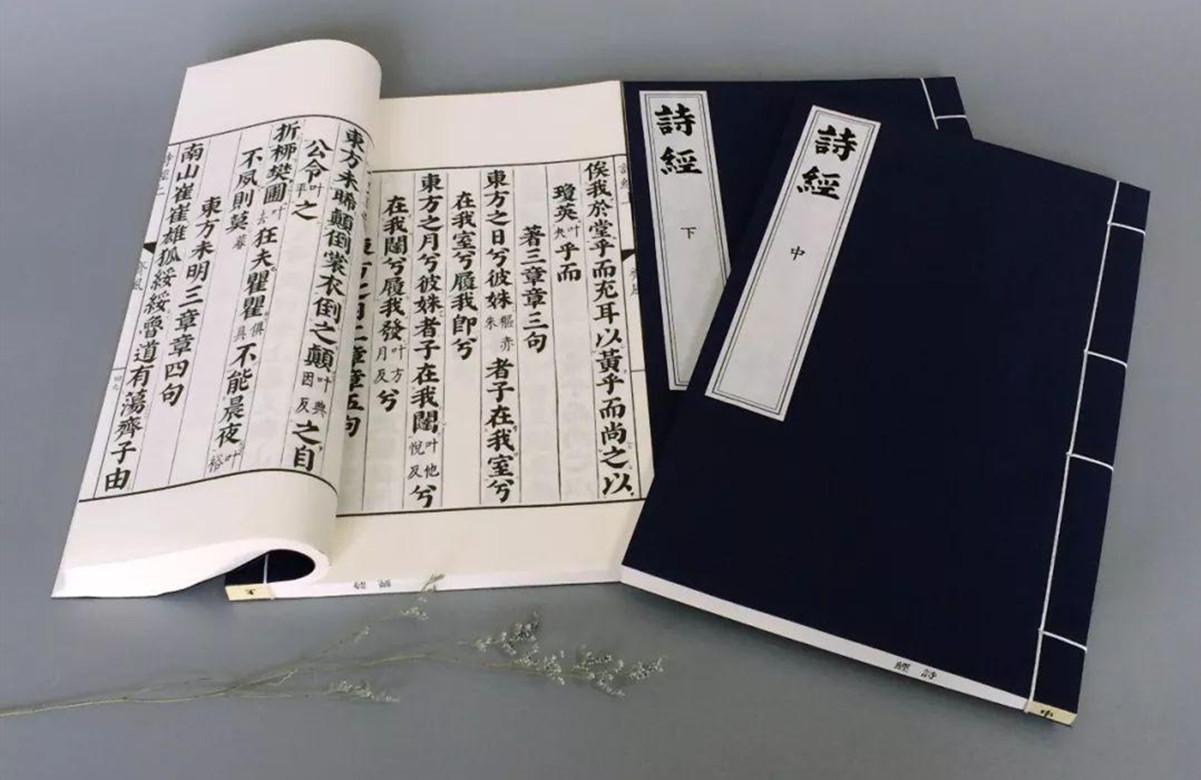 俟我於堂乎而充耳以黃乎而尚之以
瓊英叶央乎而
著三章章三句
東方之日兮彼姝朱者子在我室兮
在我室兮履我卽兮
東方之月兮彼姝者子在我闥叶他悅反兮
在我闥兮履我發叶方月反兮
東方之日二章章五句
東方未晞顛倒裳衣倒之顛叶典因反之自
公令叶平之
折柳樊圃叶去狂夫瞿瞿俱具不能晨夜叶裕
不夙則莫
東方未明三章章四句
南山崔崔雄狐綏綏魯道有蕩齊子由
詩經
下
詩經
中
詩經
中
詩經
上